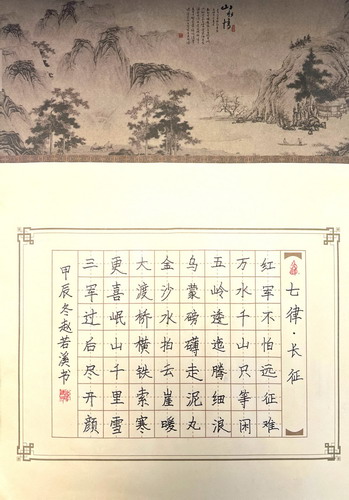 七律·长征
红军不怕远征难
万水千山只等闲
五岭逶迤腾细浪
乌蒙磅礴走泥丸
金沙水拍云崖暖
大渡桥横铁索寒
更喜岷山千里雪
三军过后尽开颜
甲辰冬赵若溪书